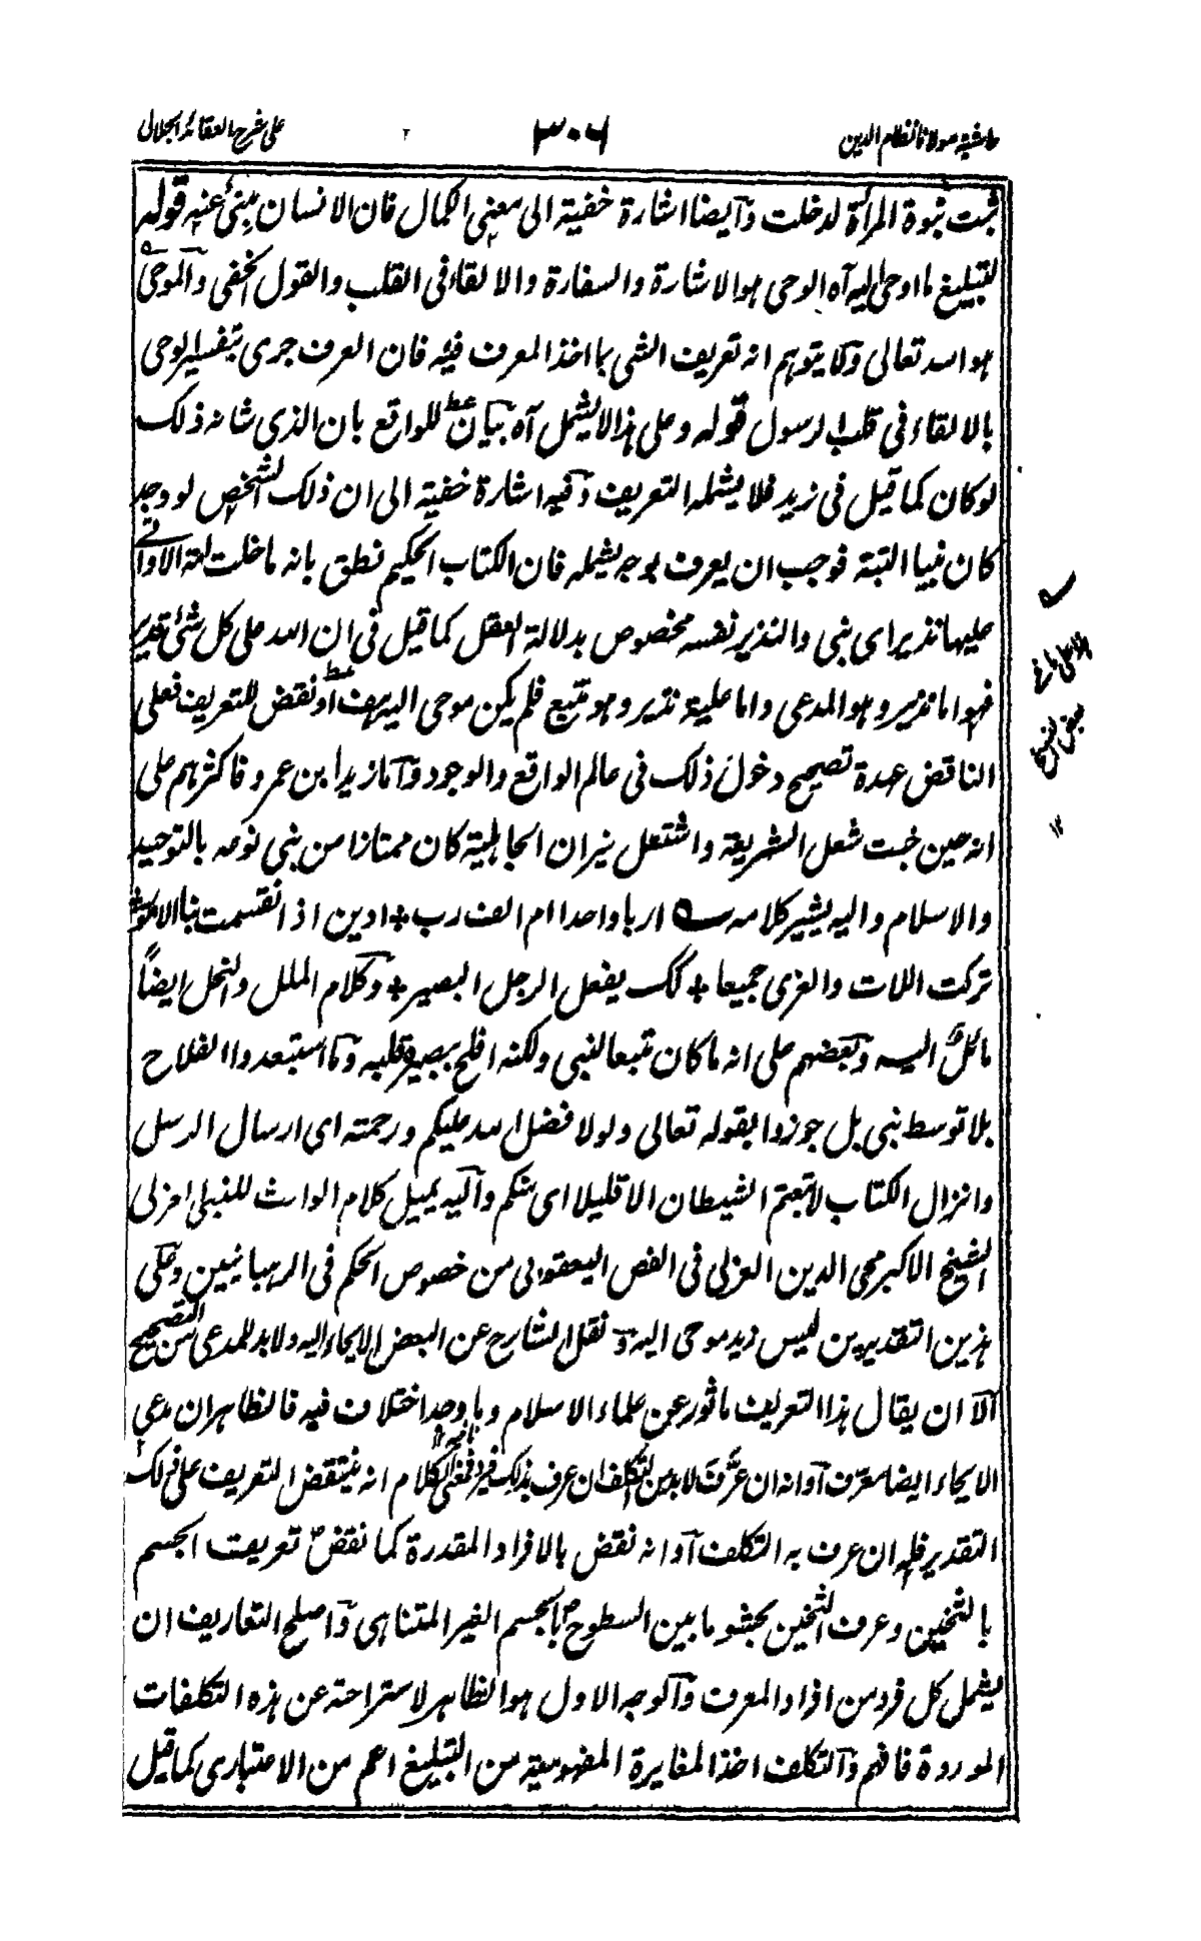 حاشیة مولانا نظام الدین
۳۰۶
علی شرح العقائد الجلالی
ثبت نبوة المرأة لدخلت وأيضا اشارة خفية الى معنى الكمال فان الانسان مبنئ عنه قوله
لتبليغ ما اوحى اليه آه الوحى هو الاشارة والسفارة والالقاء فى القلب والقول الخفى والموحى
هو الله تعالى ولا يتوهم انه تعريف الشى بما اخذ المعرف فيه فان العرف جرى بتفسير الوحى
بالالقاء فى قلب الرسول قوله وعلى هذا لا يشمل آه بيان للواقع بان الذى شانه ذلك
لو كان كما قيل فى زيد فلا يشمله التعريف وفيه اشارة خفية الى ان ذلك الشخص لو وجد
كان نبيا البتة فوجب ان يعرف بوجه يشمله فان الكتاب الحكيم نطق بانه ما خلت امة الا واتى
عليها نذير اى نبى والنذير نفسه مخصوص بدلالة العقل كما قيل فى ان الله على كل شئ قدير
فهو اما نذير وهو المدعى واما عليه نذير وهو متبع فلم يكن موحى اليه او نقض للتعريف فعلى
الناقض عهدة تصحيح دخول ذلك فى عالم الواقع والوجود وآما زيد ابن عمرو فاكثرهم على
انه حين خبت شعل الشريعة واشتعل نيران الجاهلية كان ممتازا من بنى نوعه بالتوحيد
والاسلام واليه يشير كلامه اربا واحدا ام الف رب + ادين اذا انقسمت بنا الامور +
تركت اللات والعزى جميعا + كك يفعل الرجل البصير + وكلام الملل والنحل ايضاً
مائل اليه وبعضهم على انه ما كان تبعا لنبى ولكنه افلح ببصيرة قلبه وما استبعدوا الفلاح
بلا توسط نبى بل جوزوا بقوله تعالى ولولا فضل الله عليكم ورحمته اى ارسال الرسل
وانزال الكتاب لاتبعتم الشيطان الا قليلا اى منكم وآليه يميل كلام الوارث للنبى
الشيخ الاكبر محى الدين العربى فى الفص اليعقوبى من خصوص الحكم فى الرهبانيين وعلى
هذين التقديرين ليس زيد موحى اليه ونقل الشارح عن البعض الايحاء اليه ولا بد للمدعى من التصحيح
الا ان يقال هذا التعريف ماثور عن علماء الاسلام وما وجد اختلاف فيه فالظاهر ان مدعى
الايحاء ايضا معرف آو انه ان عرّف لا بد من التكلف ان عرف بذلك فمعنى الكلام انه ينتقض التعريف على ذلك
التقدير فلهذا ان عرف به التكلف آو انه نقض بالافراد المقدرة كما نقض تعريف الجسم
بالثخين وعرف الثخين بحشو ما بين السطوح بالجسم الغير المتناهى وآصلح التعاريف ان
يشمل كل فرد من افراد المعرف وآلوجه الاول هو الظاهر لاستراحته عن هذه التكلفات
الموروة فافهم وآلتكلف اخذ المغايرة المفهومية من التبليغ اعم من الاعتبارى كما قيل